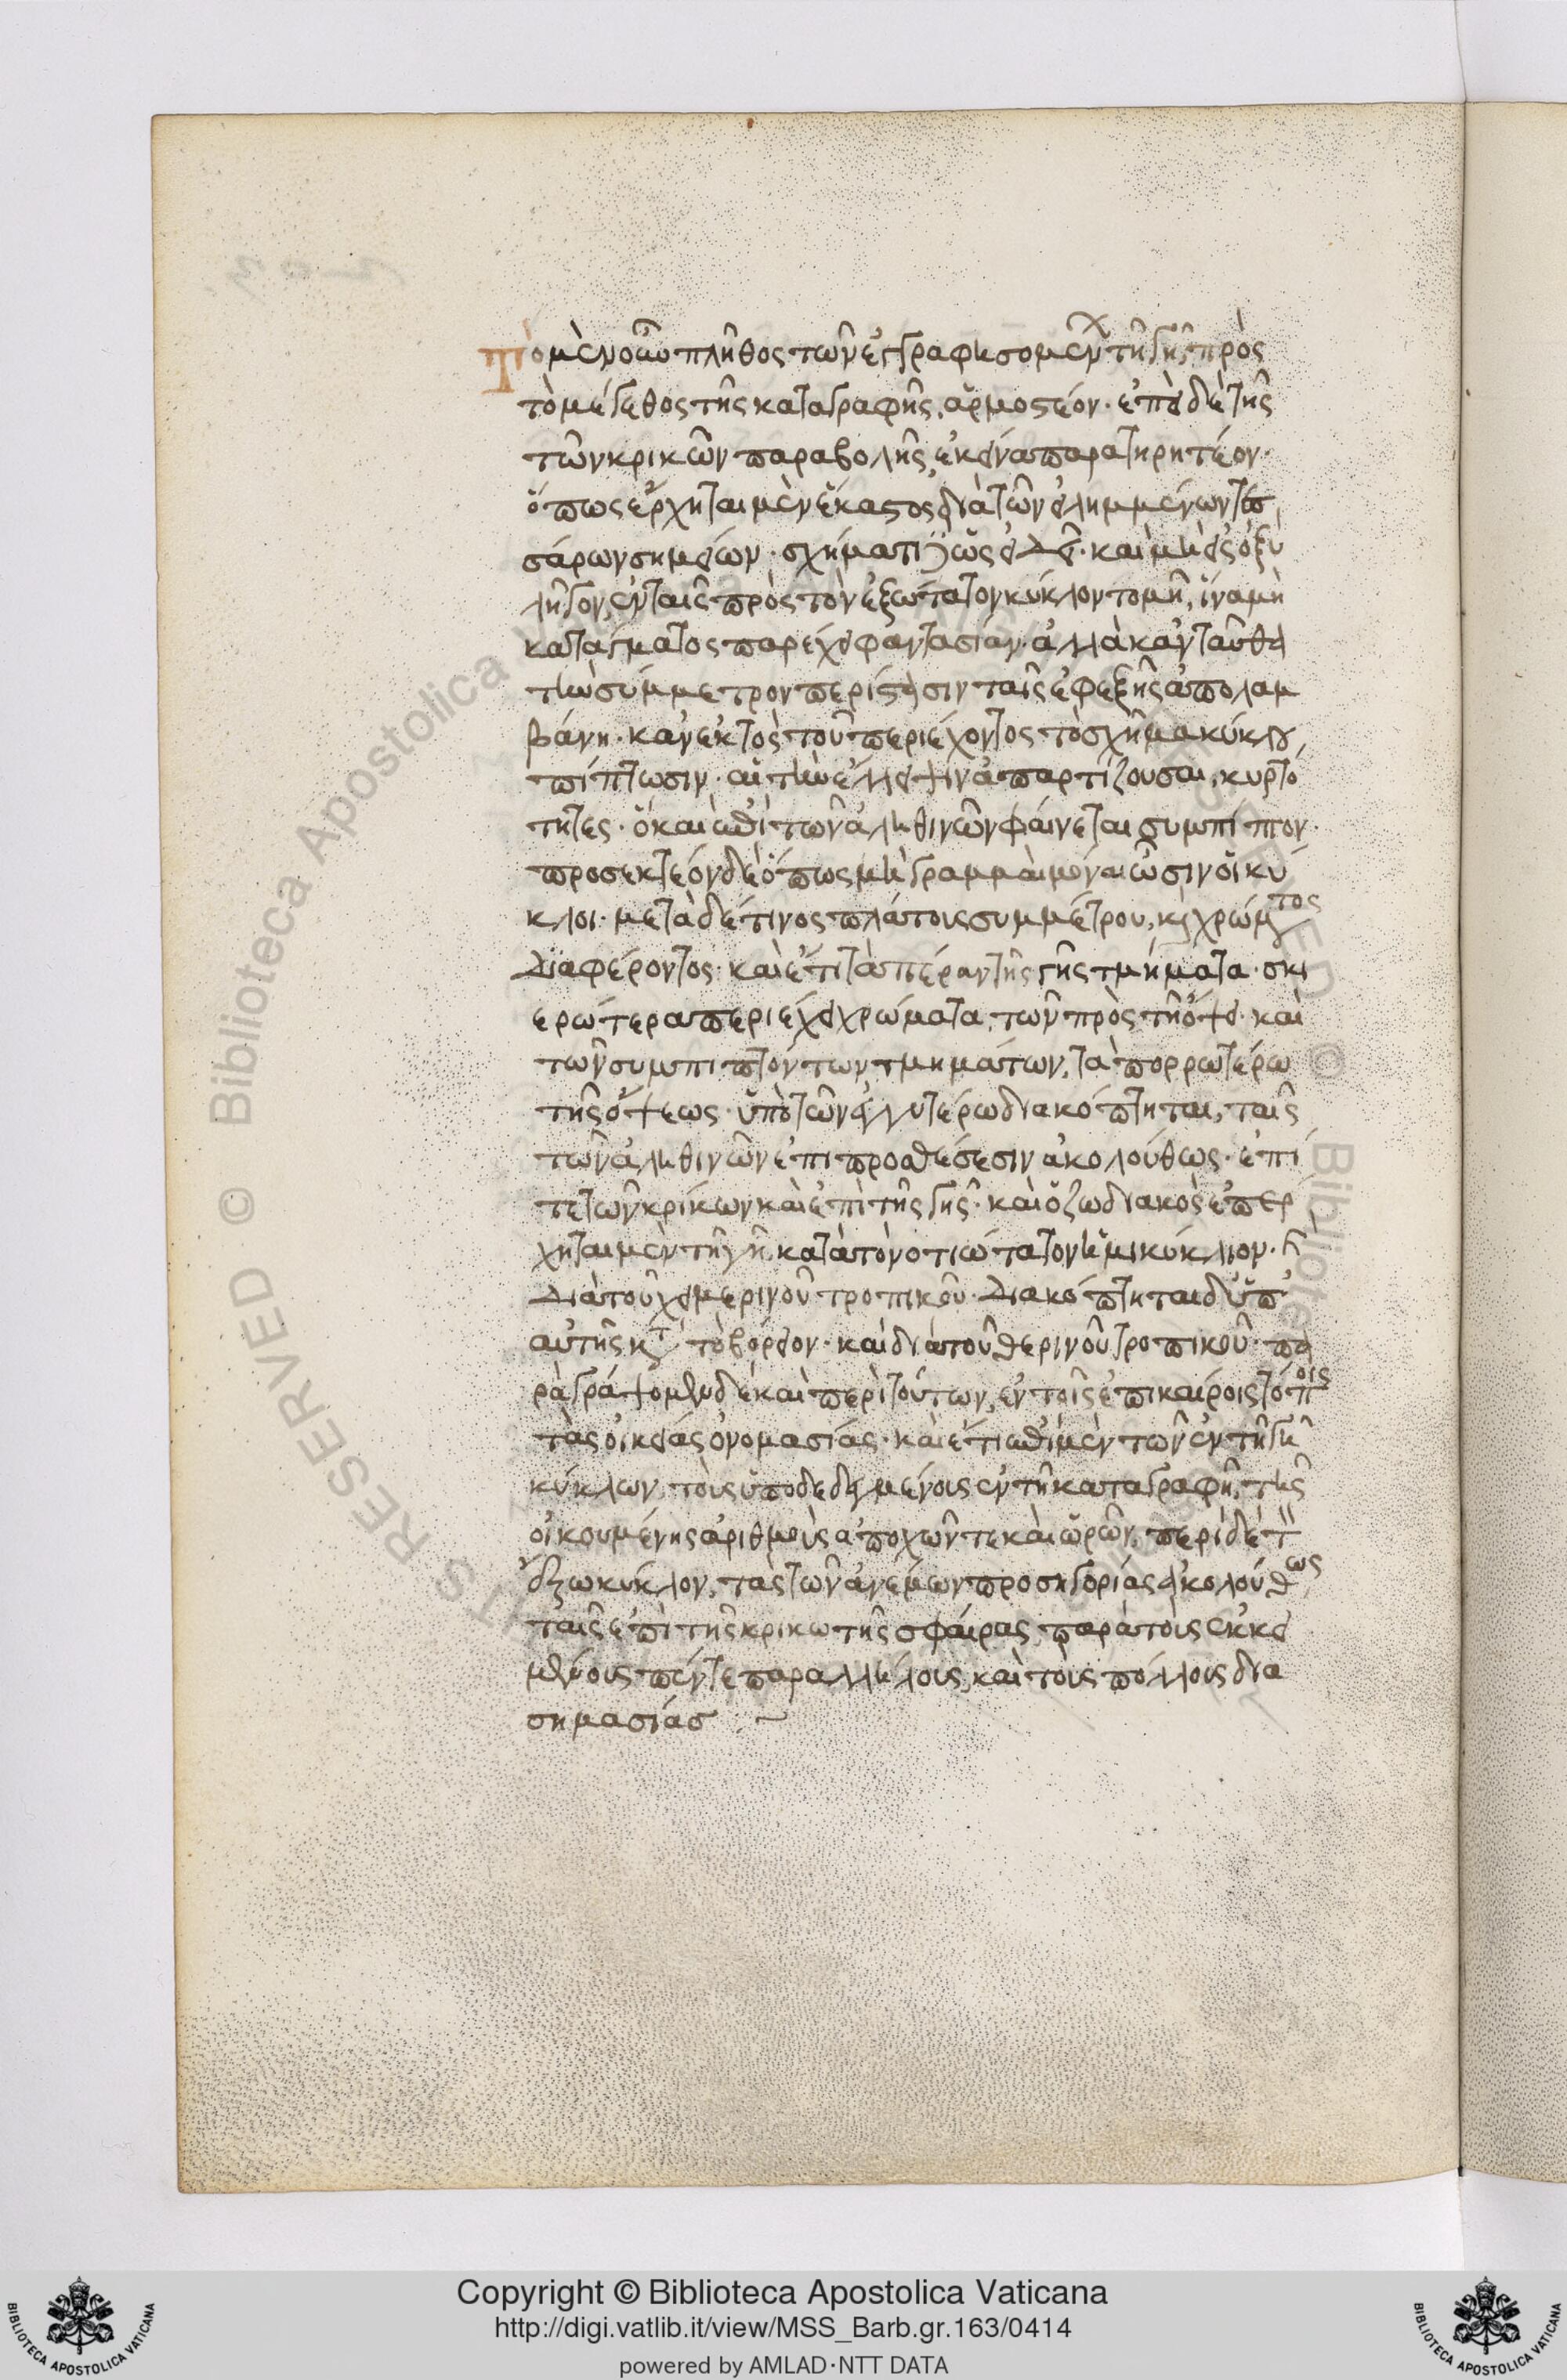 Τὸ μὲν οὖν πλῆθος τῶν ἐγγραφησομένων τῆ γῆ πρὸς
τὸ μέγεθος τῆς καταγραφῆς ἁρμοστέον· ἐπὶ δὲ τῆς
τῶν κρίκων παραβολῆς ἐκεῖνα παρατηρητέον·
ὅπως ἔρχηται μὲν ἕκαστος διὰ τῶν εἰλημμένων τεσ
σάρων σημείων· σχήματι ὠοειδεῖ· καὶ μὴ εἰς ὀξὺ
λῆγον ἐν ταῖς πρὸς τὸν ἐξώτατον κύκλον τομῆ, ἵνα μὴ
κατάγματος παρέχει φαντασίαν· ἀλλὰ κἀνταῦθα
τὴν σύμμετρον περίστασιν ταῖς ἐφεξῆς ἀπολαμ
βάνη· κἂν ἐκτὸς τοῦ περιέχοντος τὸ σχῆμα κύκλου
πίπτωσιν· αἱ τὴν ἔλλειψιν ἀπαρτίζουσαι κυρτό
τητες· ὃ καὶ ἐπὶ τῶν ἀληθινῶν φαίνεται συμπίπτον·
προσεκτέον δὲ ὅπως μὴ γραμμαὶ μόναι ὦσιν οἱ κύ
κλοι· μετὰ δέ τινος πλάτους συμμέτρου, καὶ χρώματος
διαφέροντος· καὶ ἔτι τὰ πέραν τῆς γῆς τμήματα· σκι
ερώτερα περιέχει χρώματα, τῶν πρὸς τῆ ὄψει· καὶ
τῶν συμπιπτόντων τμημάτων, τὰ πορρωτέρω
τῆς ὄψεως· ὑπὸ τῶν ἐγγυτέρω διακόπτηται, ταῖς
τῶν ἀληθινῶν ἐπιπροσθέσεσιν ἀκολούθως· ἐπί
τε τῶν κρίκων καὶ ἐπὶ τῆς γῆς· καὶ ὁ ζωδιακὸς ἐπέρ
χηται μὲν τῆ γῆ κατὰ τὸ νοτιώτατον ἡμικύκλιον· καὶ
διὰ τοῦ χειμερινοῦ τροπικοῦ· διακόπτηται δ' ὑπ'
αὐτῆς κατὰ τὸ βόρειον· καὶ διὰ τοῦ θερινοῦ τροπικοῦ· πα
ραγράψομεν δὲ καὶ περὶ τούτων ἐν τοῖς ἐπικαίροις τόποις
τὰς οἰκείας ὀνομασίας· καὶ ἔτι ἐπὶ μὲν τῶν ἐν τῆ γῆ
κύκλων τοὺς ὑποδεδειγμένους ἐν τῆ καταγραφῆ τῆς
οἰκουμένης ἀριθμοὺς ἀποχῶν τε καὶ ὡρῶν, περὶ δὲ τὸν
ἔξω κύκλον, τὰς τῶν ἀνέμων προσηγορίας ἀκολούθως
ταῖς ἐπὶ τῆς κρικωτῆς σφαίρας παρὰ τοὺς ἐκκει
μένους πέντε παραλλήλους, καὶ τοὺς πόλους δια
σημασίας :~
Copyright © Biblioteca Apostolica Vaticana
http://digi.vatlib.it/view/MSS_Barb.gr.163/0414
powered by AMLAD·NTT DATA